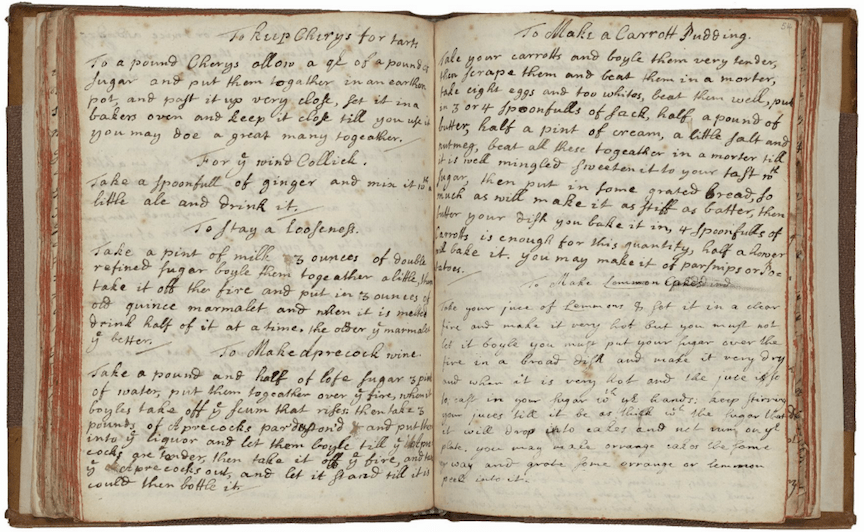 To keep Cherys for tarts
To a pound Cherys allow a qr of a pound of
sugar and put them togather in an earthen
pot, and past it up very close, set it in a
bakers oven and keep it close till you use it
you may doe a great many togeather.
For ye wind Collick.
Take a spoonfull of ginger and mix it wth a
little ale and drink it.
To stay a Looseness.
Take a pint of milk 3 ounces of double
refined sugar boyle them togeather a little, then
take it off the fire and put in 3 ounces of
old quince marmalet and when it is melted
drink half of it at a time. the older ye marmalet
ye better.
To Make Aprecock wine
Take a pound and half of lofe sugar 3 pints
of water, put them togeather over ye fire, when it
boyles take off ye scum that rises then take 3
pounds of Aprecocks pard and put them
into ye liquor and let them boyle till ye Apre
cocks are tender, then take it off ye fire, and take
ye Aprecocks out, and let it stand till it is
could then bottle it.
54
To Make a Carrott Pudding.
Take your carrotts and boyle them very tender,
then scrape them and beat them in a morter,
take eight eggs and too whites, beat them well, put
in 3 or 4 spoonfulls of sack, half a pound of
butter, half a pint of cream, a little salt and
nutmeg, beat all these togeather in a morter till
it is well mingled sweeten it to your tast wth
sugar, then put in some grated bread, so
much as will make it as stiff as batter, then
butter your dish you bake it in, 4 spoonfulls of
Carrotts is enough for this quantity, half a hower
will bake it. you may make it of parsnips or Po-
tatoes.
To Make Lemmon Cakes
Take your juce of Lemmons & sot it in a clear
fire and make it very hot but you must not
let it boyle you must put your sugar over the
fire in a broad dish and make it very dry
and when it is very hot and the juce is so
to cast in your sugar wth yr hands: keep stirring
your juces till it be as thick wth the sugar that
it will drop into cakes and not run on ye
plate. you may make orrange cakes the same
way and grate some orrange or lemmon
peel into it.